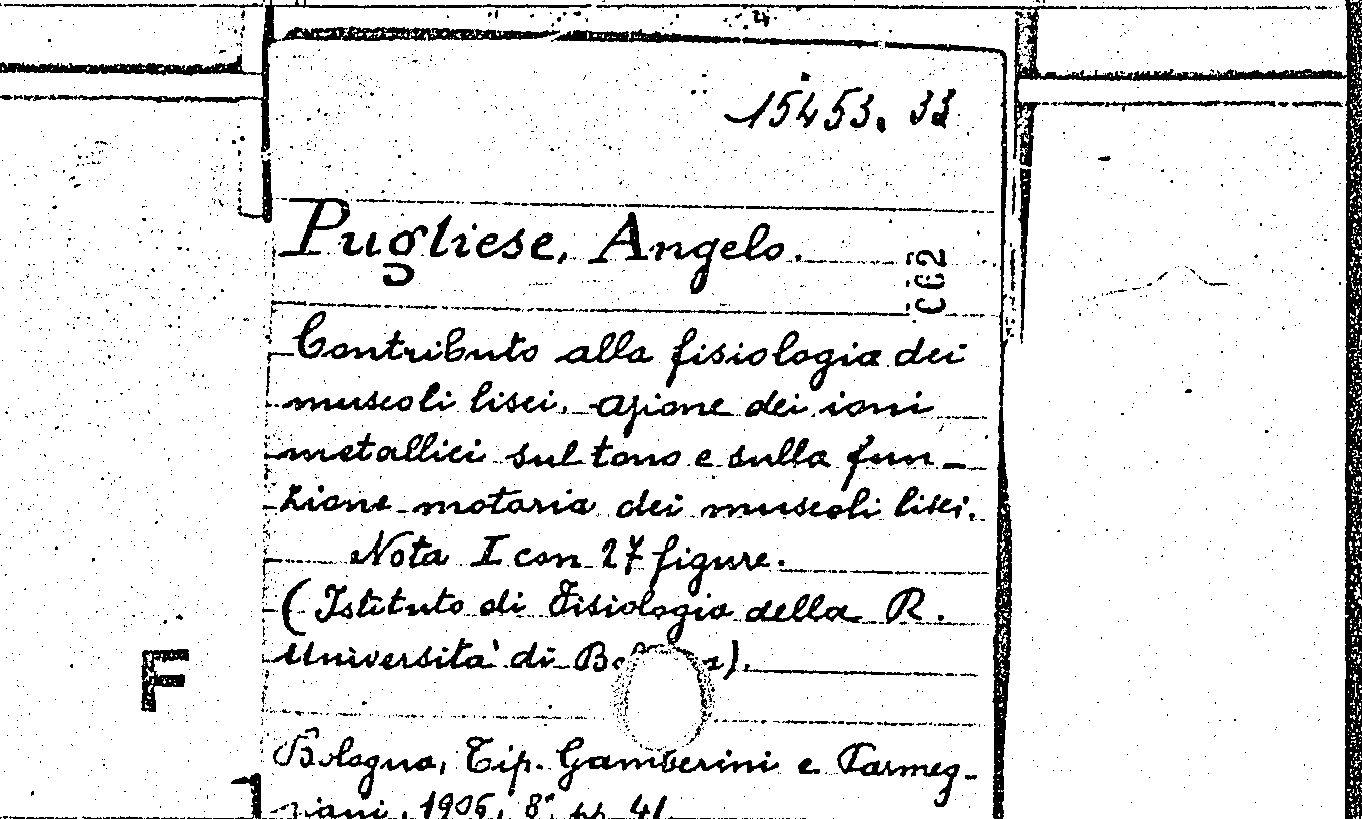 15453. 33
Pugliese, Angelo.
C62
Contributo alla fisiologia dei
muscoli lisci. Azione dei ioni
metallici sul tono e sulla fun-
zione motoria dei muscoli lisci.
Nota I con 27 figure.
(Istituto di Fisiologia della R.
Università di
F
Bologna, Tip. Gamberini e Parmeg-
giani, 1906, 8° pp. 41